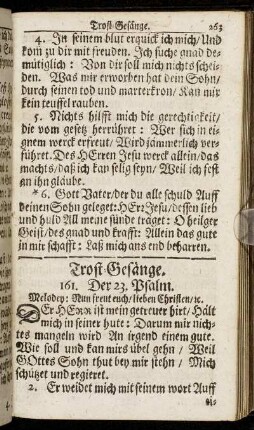 Trost-Gesänge. 263
4. In seinem blut erquick ich mich/Und
kom zu dir mit freuden. Ich suche gnad de-
mütiglich : Von dir soll mich nichts schei-
den. Was mir erworben hat dein Sohn/
durch seinen tod und marterkron/Kan mir
kein teuffel rauben.
5. Nichts hilfft mich die gerechtigkeit/
die vom gesetz herrühret : Wer sich in eig-
nem werck erfreut/Wird jämmerlich ver-
führet. Des HErren Jesu werck allein/das
machts/daß ich kan selig seyn/Weil ich fest
an ihn gläube.
* 6. Gott Vater/der du alle schuld Auff
deinen Sohn geleget:HErr Jesu/dessen lieb
und huld All meine sünde träget : O heilger
Geist/des gnad und krafft: Allein das gute
in mir schafft : Laß mich ans end beharren.
Trost-Gesänge.
161. Der 23. Psalm.
Melodey: Nun freut euch/lieben Christen/ꝛc.
DEr HERR ist mein getreuer hirt/Hält
mich in seiner hute : Darum mir nich-
tes mangeln wird An irgend einem gute.
Wie soll und kan mirs übel gehn / Weil
GOttes Sohn thut bey mir stehn / Mich
schützet und regieret.
2. Er weidet mich mit seinem wort Auff